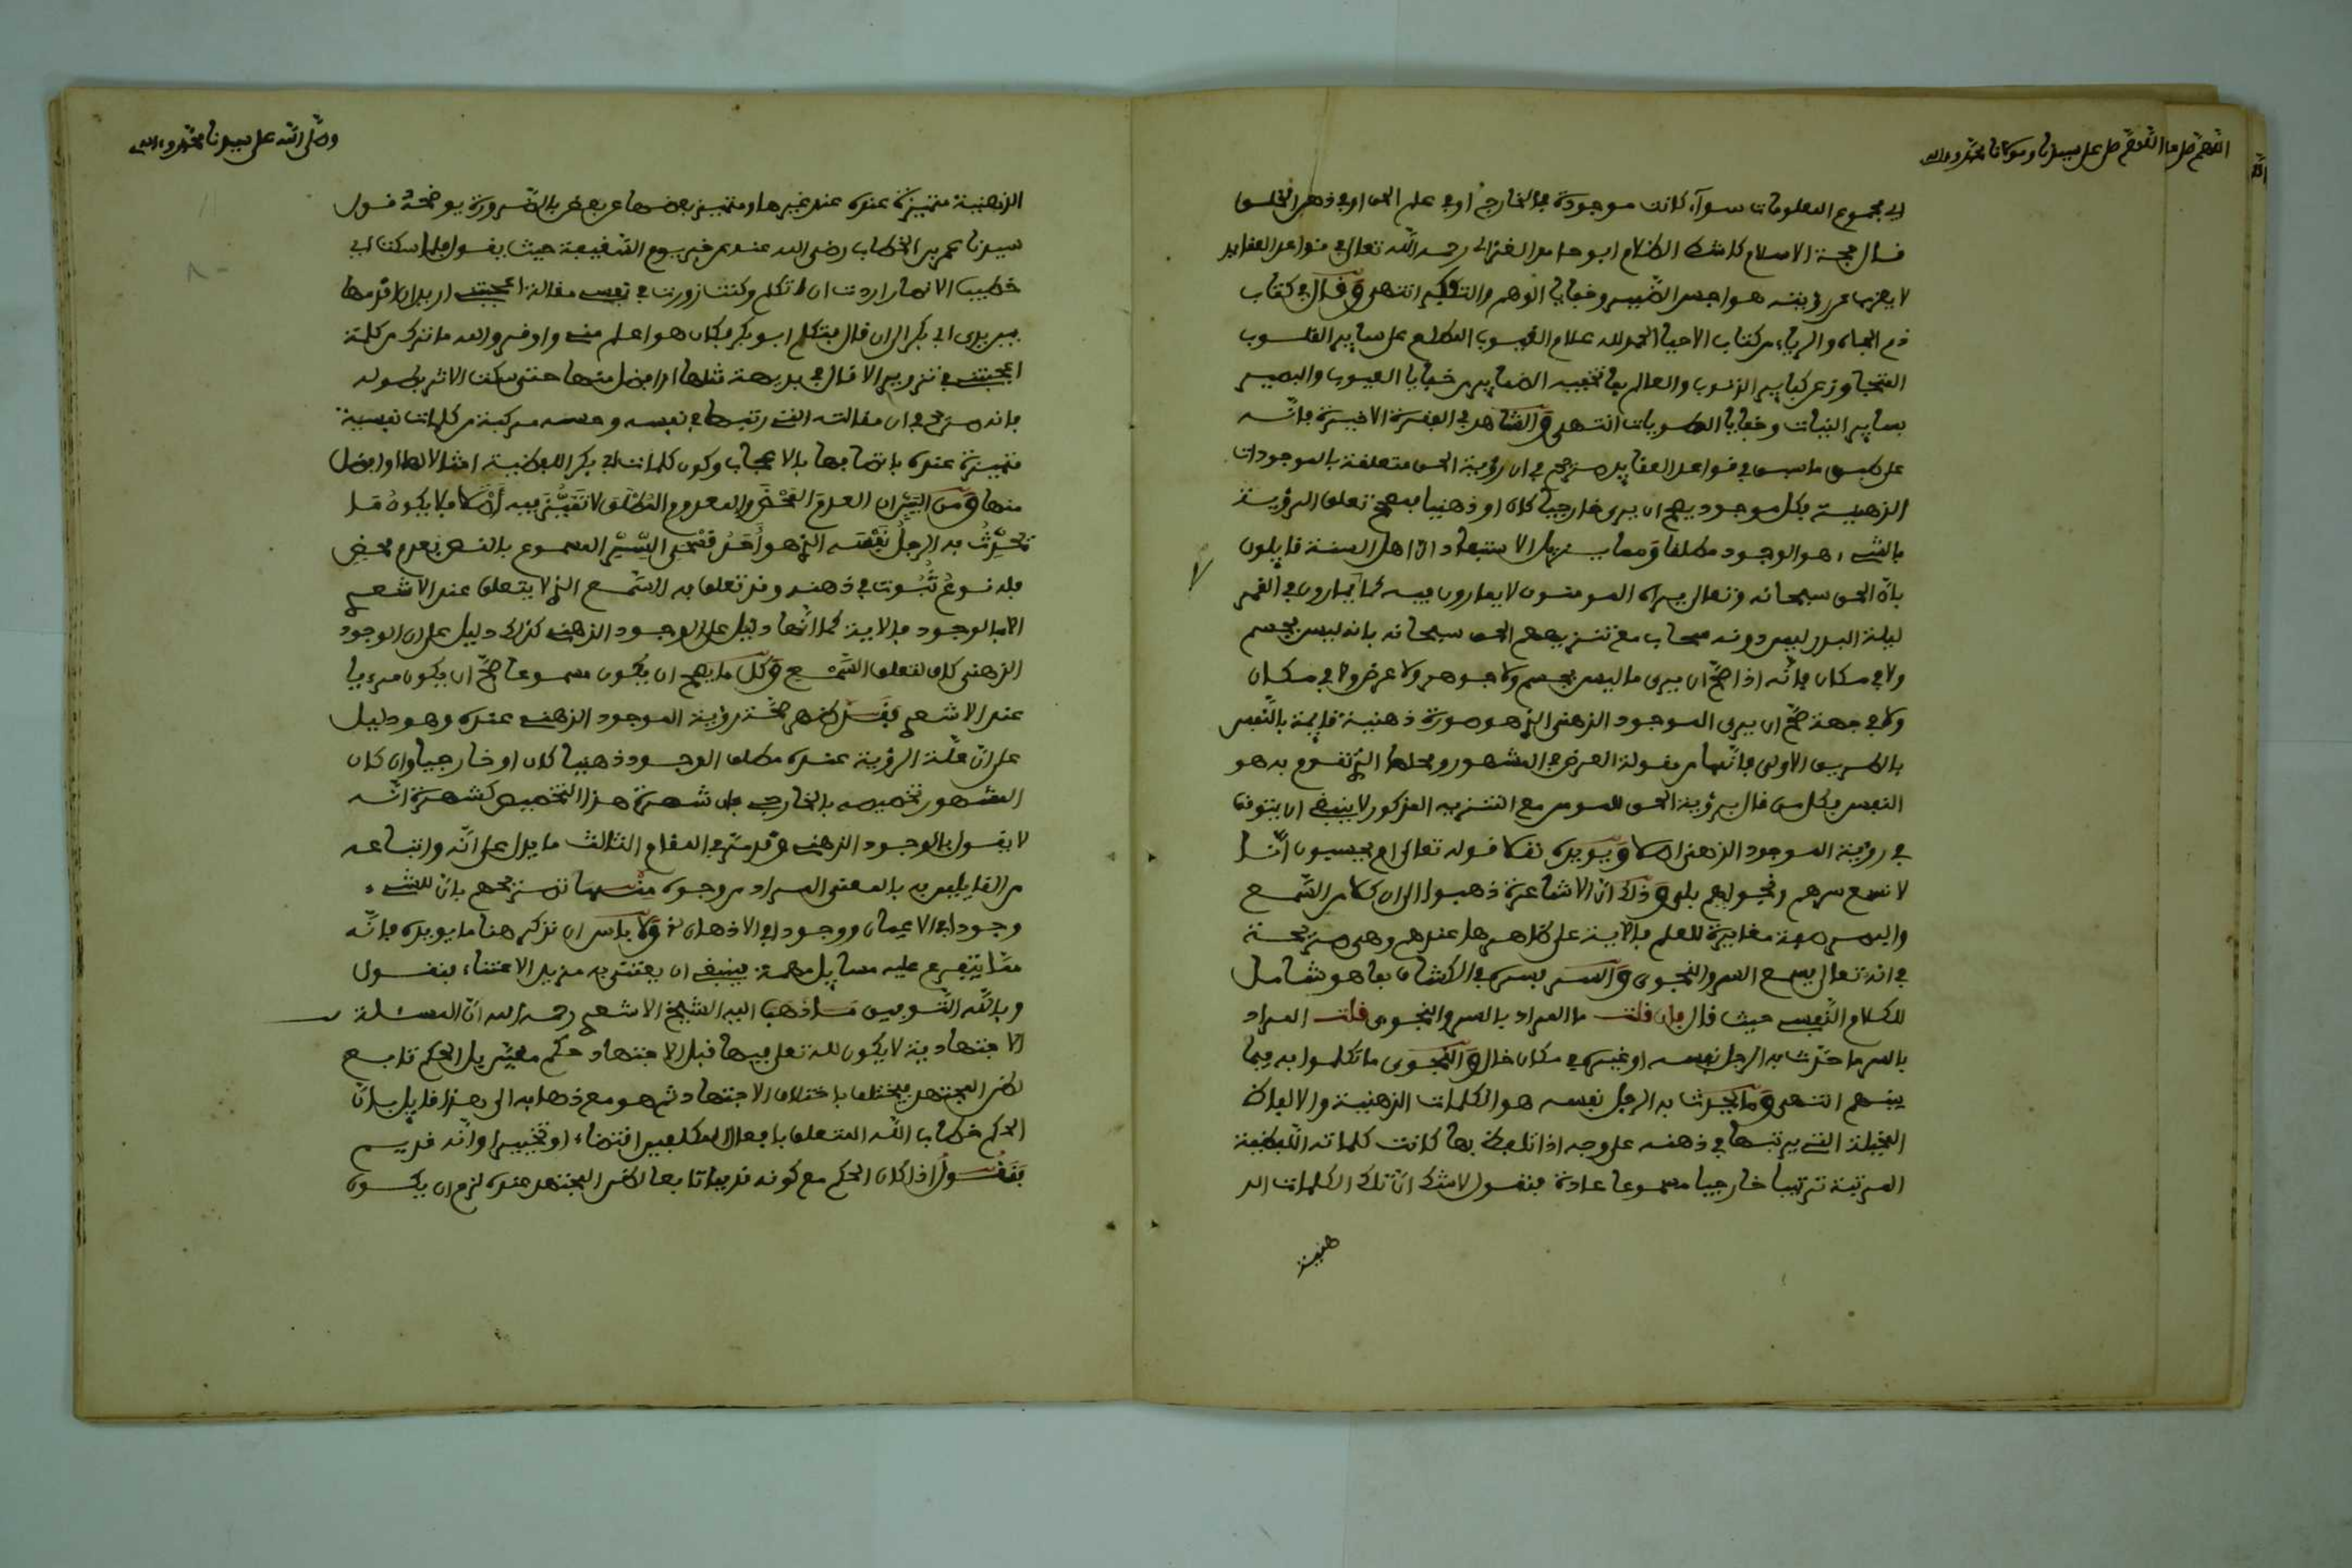 اللهم صل على سيدنا ومولانا محمد وءاله
اي مجموع المعلومات سوآء كانت موجودة في الخارج اوفي علم الحق اوفي ذهن الخلق
قال حجة الاسلام ابو حامد الغزالي رحمه الله تعالى في قواعد العقايد
لا يعزب عن رؤيته هواجس الضمير وخفايا الوهم والتفكير انتهى وقال في كتاب
ذم الجاه والرياء من كتاب الاحيا الحمد لله علام الغيوب المطلع على سراير القلوب
المتجاوز عن كباير الذنوب والعالم بما تخفيه الضماير من خبايا العيوب والبصير
بسراير النيات وخفايا الطويات انتهى والشاهد في الفقرة الاخيرة فانّه
على طبق ما سبق في قواعد العقايد صريح في ان رؤية الحق متعلقة بالموجودات
الذهنية فكل موجود يصح ان يرى خارجيا كان او ذهنيا فمصحح تعلق الرؤية
بالشيء هو الوجود مطلقا ومما يزيل الاستبعاد انّ اهل السنة قايلون
بانّ الحق سبحانه وتعالى يراه المومنون لا يمارون فيه كما لا يمارون في القمر
ليلة البدر ليس دونه سحاب مع تنزيههم الحق سبحانه بانه ليس بجسم
ولا في مكان فانّه اذا صحّ ان يرى ما ليس بجسم ولا جوهر ولا عرض ولا في مكان
ولا في جهة صحّ ان يرى الموجود الذهني الذي هو صورة ذهنية قايمة بالنّفس
بالطريق الاولى فانّها من مقولة العرض في المشهور ومحلها الذي تقوم به هو
النفس فكل من قال برؤية الحق للمومن مع التنزيه المذكور لا ينبغي ان يتوقف
في رؤية الموجود الذهني اصلا ويويده نقلا قوله تعالى ام يحسبون انّا
لا نسمع سرهم ونجواهم بلى وذلك انّ الاشاعرة ذهبوا الى ان كلا من السّمع
والبصر صفة مغايرة للعلم فالاية على ظاهرها عندهم وهي صريحة
في انه تعالى يسمع السر والنجوى والسر فسره في الكشاف بما هو شامل
للكلام النّفسي حيث قال فان قلت ما المراد بالسر والنجوى قلت المراد
بالسر ما حدّث به الرجل نفسه او غيره في مكان خال والنّجوى ما تكلموا به فيما
بينهم انتهى وما يحدث به الرجل نفسه هو الكلمات الذهنية والالفاظ
المخيلة التي يرتبها في ذهنه على وجه اذا تلفظ بها كانت كلماته اللفظية
المرتبة ترتيبا خارجيا مسموعا عادة فنقول لا شك انّ تلك الكلمات الذ
هنية
وصلى الله على سيدنا محمد وءاله
الذهنية متميزة عنده عند غيرها ومتميز بعضها عن بعض بالضّرورة يوضحه قول
سيدنا عمر بن الخطاب رضي الله عنه عن خبر يوم السّقيفة حيث يقول فلما سكت اي
خطيب الانصار اردت ان اتكلم وكنت زورت في نفسي مقالة اعجبتني اريد ان اقدمها
بين يدي ابي بكر الى ان قال فتكلم ابو بكر فكان هو اعلم مني واوقر والله ما ترك من كلمة
اعجبتني في تزويري الا قال في بديهته مثلها او افضل منها حتى سكت الاثر بطوله
فانه صريح في ان مقالته التي رتبها في نفسه وحسنه مركبة من كلمات نفسية
متميزة عنده باتصافها بالاعجاب وكون كلمات ابي بكر اللفظية امثالا لها او افضل
منها ومن البيّن ان العدم المحض والمعدوم المطلق لا تميّز فيه اصلا فلا يكون ما
يُحدّث به الرجل نفسه الذي هو احد قسمي السّر المسموع بالنص بعدم محض
فله نوع ثبوت في ذهنه وقد تعلق به السّمع الذي لا يتعلق عند الاشعري
الا بالوجود فالاية كما انّها دليل على الوجود الذهني كذلك دليل على ان الوجود
الذهني كاف لتعلق السّمع وكل ما يصح ان يكون مسموعا صحّ ان يكون مرءيا
عند الاشعري فقد ظهر صحّة رؤية الموجود الذهني عنده وهو دليل
على انّ علّة الرؤية عنده مطلق الوجود ذهنيا كان او خارجيا وان كان
المشهور تخصيصه بالخارجي فان شهرة هذا التخصيص كشهرة انّه
لا يقول بالوجود الذهني وقد مرّ في المقام الثالث ما يدل على انّه واتباعه
من القايلين به بالمعنى المراد من وجوه منها تصريحهم بانّ للشيء
وجودا في الاعيان ووجودا في الاذهان ولا باس ان نذكر هنا ما يويده فانّه
ممّا يتفرع عليه مسايل مهمة ينبغي ان يعتنى به مزيد الاعتناء فنقول
وبالله التّوفيق مما ذهب اليه الشيخ الاشعري رحمه الله انّ المسئلة
الاجتهادية لا يكون لله تعلى فيها قبل الاجتهاد حكم معيّن بل الحكم تابع
لظن المجتهد فيختلف باختلاف الاجتهاد ثم هو مع ذهابه الى هذا قايل بانّ
الحكم خطاب الله المتعلق بافعال المكلفين اقتضاء او تخييرا وانّه قديم
فنقول اذا كان الحكم مع كونه قديما تابعا لظن المجتهد عنده لزم ان يكون